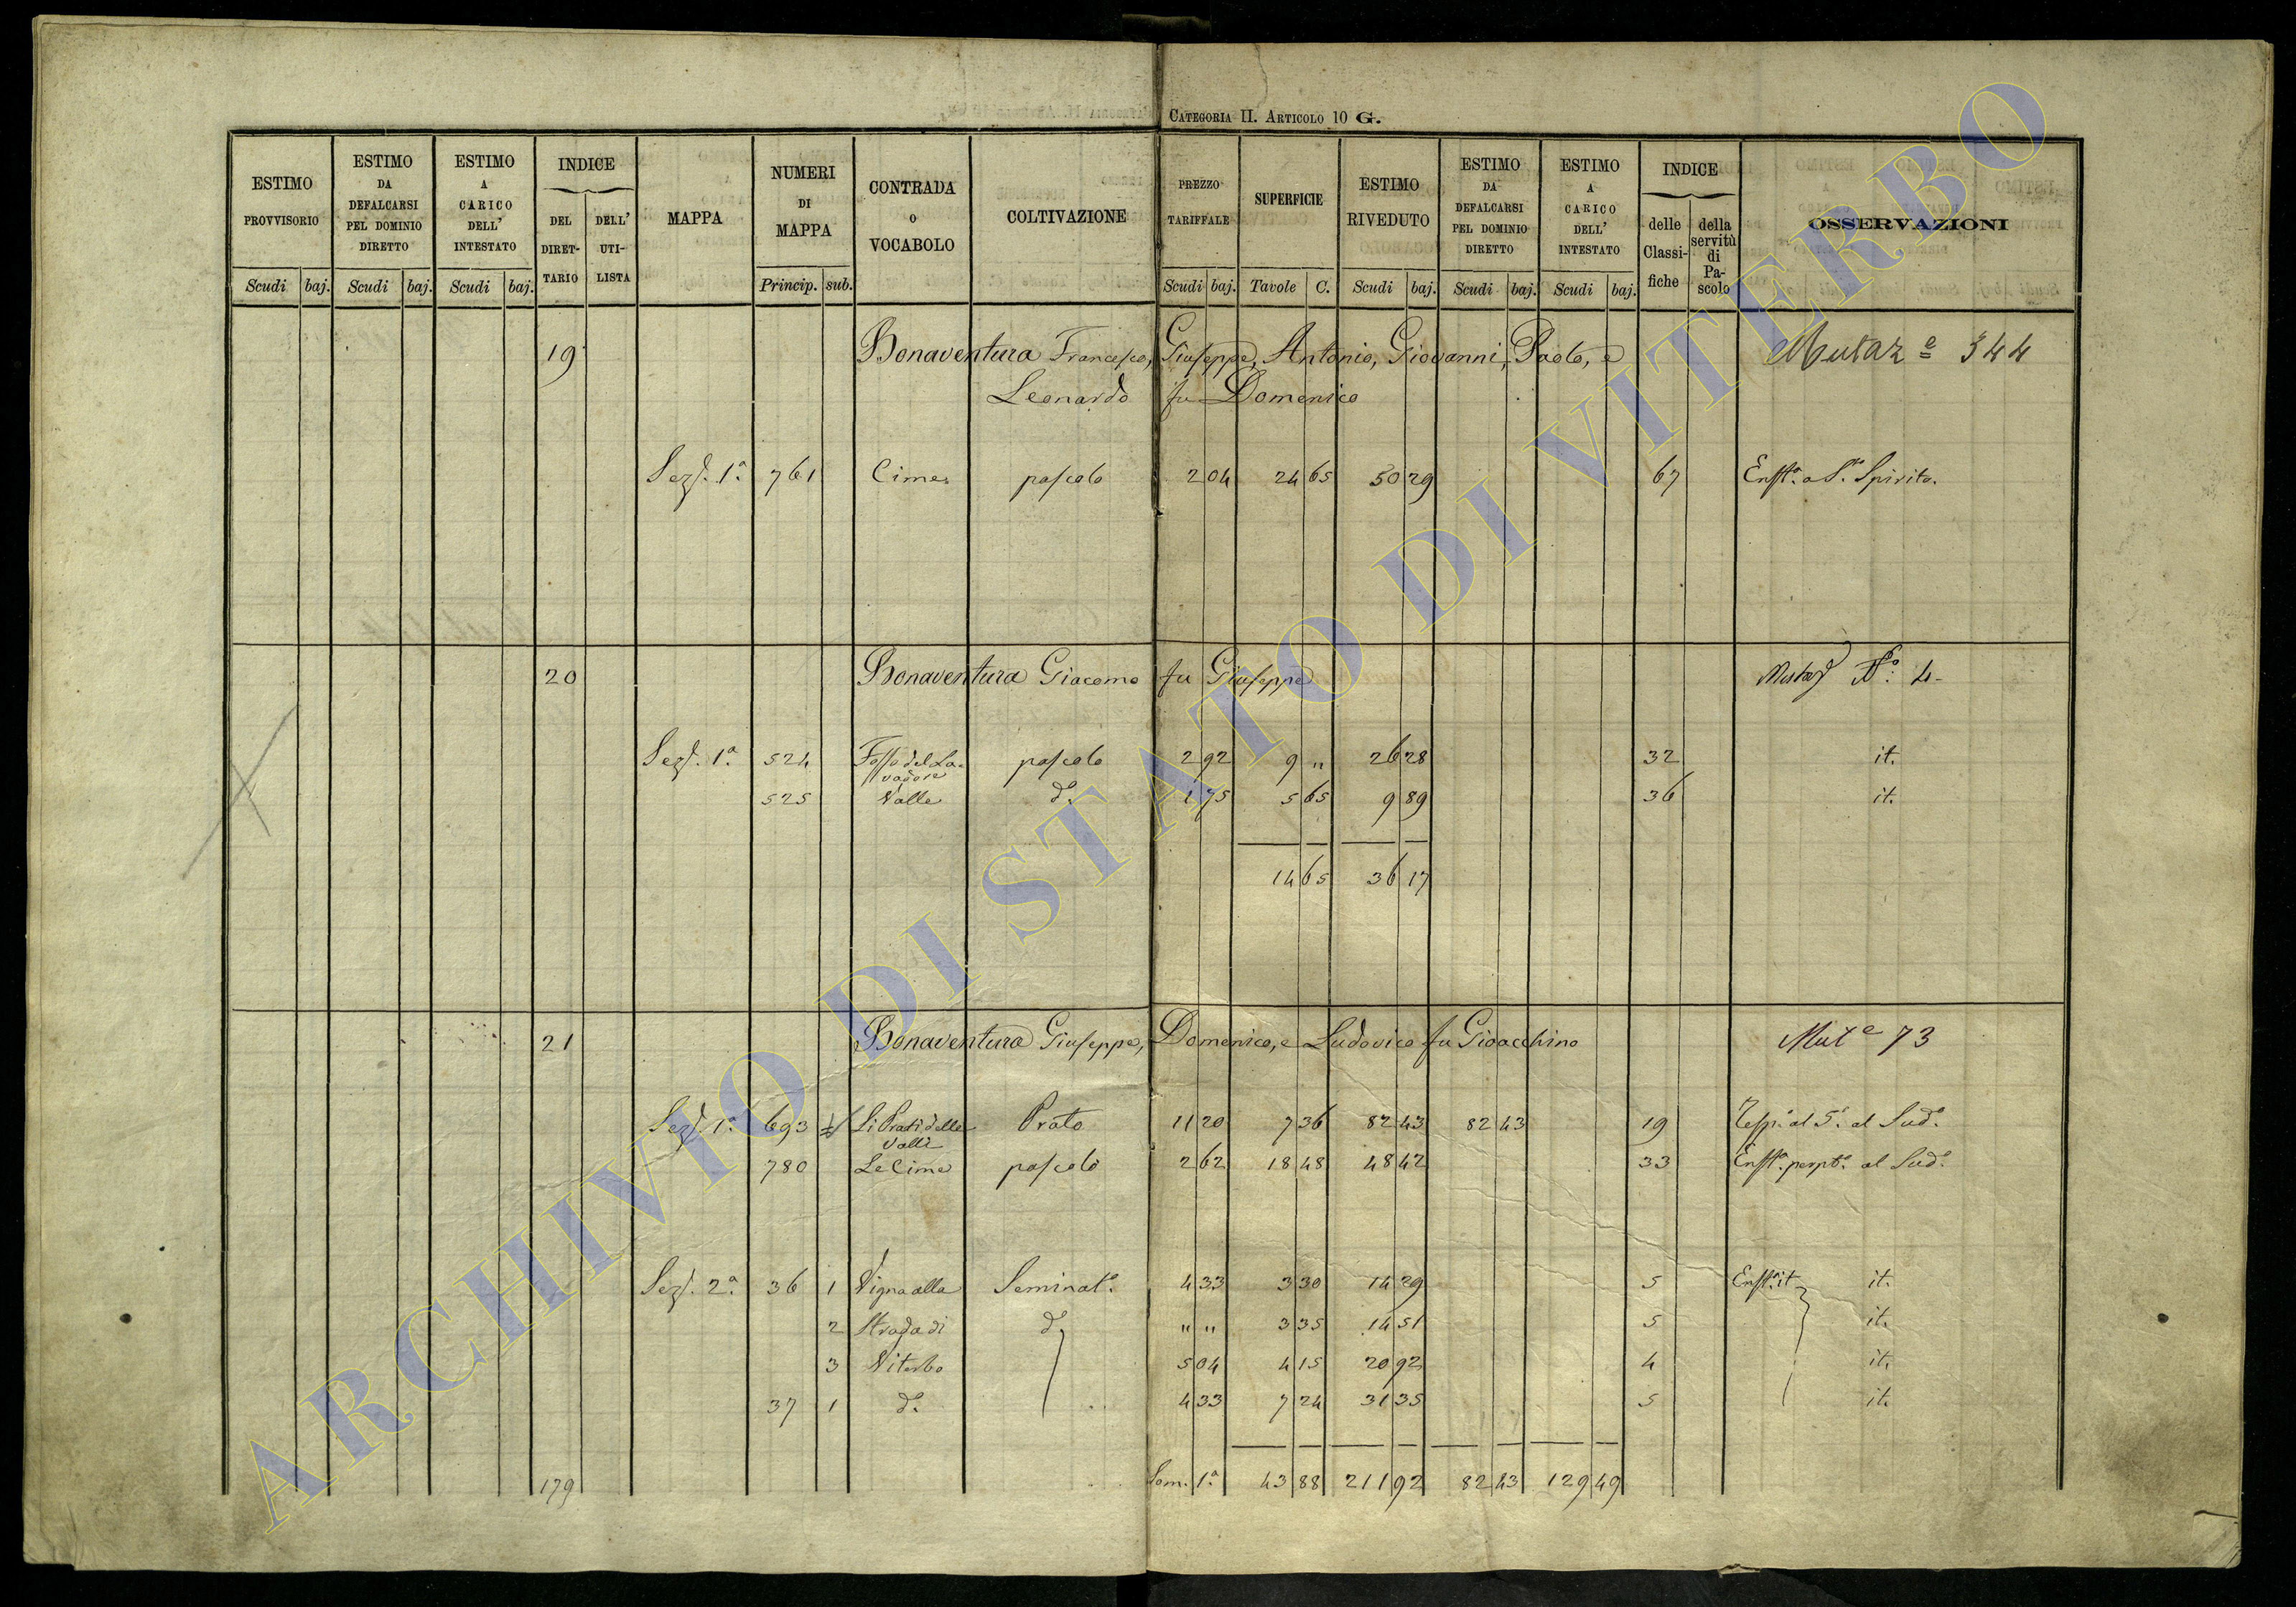 CATEGORIA II. ARTICOLO 10 G.
ESTIMO PROVVISORIO | ESTIMO DA DEFALCARSI PEL DOMINIO DIRETTO | ESTIMO A CARICO DELL' INTESTATO | INDICE DEL DIRET-TARIO | DELL' UTI-LISTA | MAPPA | NUMERI DI MAPPA | CONTRADA O VOCABOLO | COLTIVAZIONE | PREZZO TARIFFALE | SUPERFICIE | ESTIMO RIVEDUTO | ESTIMO DA DEFALCARSI PEL DOMINIO DIRETTO | ESTIMO A CARICO DELL' INTESTATO | INDICE delle Classi-fiche | della servitù di Pa-scolo | OSSERVAZIONI
Scudi | baj. | Scudi | baj. | Scudi | baj. | Princip. | sub. | Scudi | baj. | Tavole | C. | Scudi | baj. | Scudi | baj. | Scudi | baj.
19 Bonaventura Francesco, Giuseppe, Antonio, Giovanni, Paolo, e Mutaz e 344
Leonardo fu Domenico
Sez. 1a. 761 Cime pascolo 2 04 24 65 50 29 67 Enfta. a S. Spirito.
20 Bonaventura Giacomo fu Giuseppe Mutaz No. 4
Sez. 1a. 524 Fosso del La- pascolo 2 92 9 " 26 28 32 it.
vadore
525 Valle do. 1 75 5 65 9 89 36 it.
14 65 36 17
21 Bonaventura Giuseppe, Domenico, e Ludovico fu Gioacchino Mut e 73
Sez. 1a. 693 Li Prati delle Prato 11 20 7 36 82 43 82 43 19 al Sudo.
Valli
780 Le Cime pascolo 2 62 18 48 48 42 33 Enfta. perpta. al Sudo.
Sez. 2a. 36 1 Vigna alla Seminato. 4 33 3 30 14 29 5 Enfta. it it.
2 Strada di do. " " 3 35 14 51 5 it.
3 Viterbo 5 04 4 15 20 92 4 it.
37 1 do. 4 33 7 24 31 35 5 it.
179 Som. 1a. 43 88 211 92 82 43 129 49
ARCHIVIO DI STATO DI VITERBO